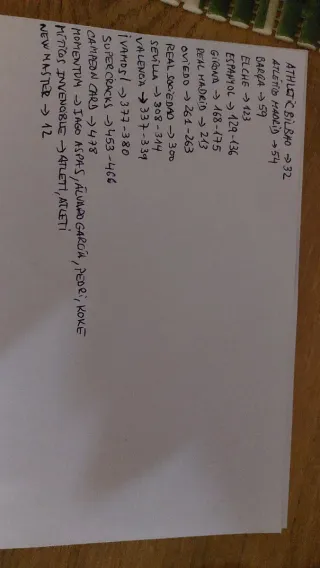 ATHLETIC BILBAO → 32
ATLETICO MADRID → 54
BARÇA → 59
ELCHE → 123
ESPANYOL → 129-136
GIRONA → 168-175
REAL MADRID → 213
OVIEDO → 261-263
REAL SOCIEDAD → 300
SEVILLA → 308-314
VALENCIA → 337-339
¡VAMOS! → 377-380
SUPER CRACKS → 453-466
CAMPEÓN CARD → 478
MOMENTUM → IAGO ASPAS, ÁLVARO GARCÍA, PEDRI, KOKE
MÍTICOS INVENCIBLE → ATLETI, ATLETI
NEW MASTER → 12